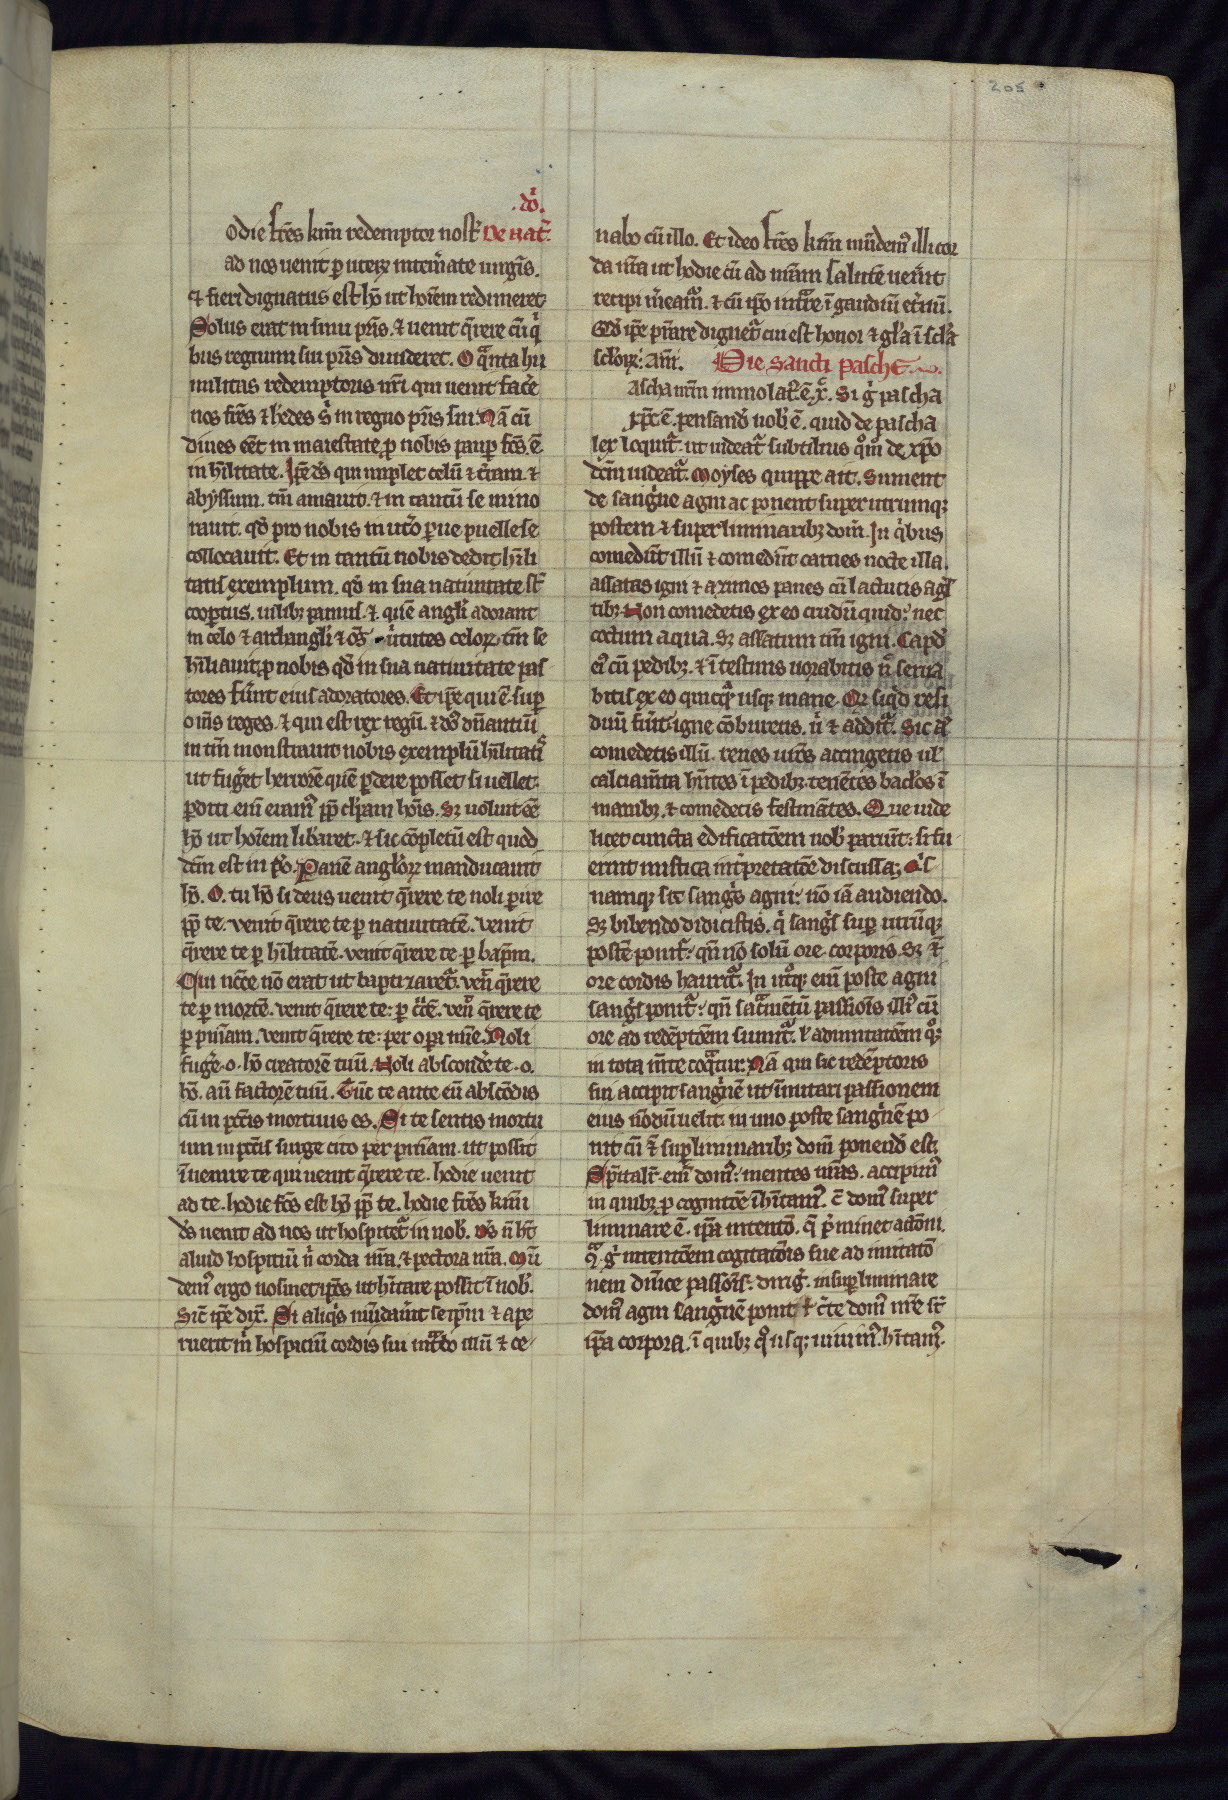 205
.dō.
odie fr̄es kr̄mi redemptor nost̄ De nat̄.
ad nos uenit p uterū intem̄ate uirgīs.
⁊ fieri dignatus est hō ut hoīem redimeret.
Solus erat in sinu pr̄is. ⁊ uenit q̄rere cū qͥ
bus regnum sui pr̄is diuideret. O qͣnta hu
militas redemptoris nr̄i qui uenit facͤe
nos fr̄es ⁊ hedes sͥ in regno pr̄is sui. Nā cū
diues eēt in maiestate p nobis paup fc̄s. ē
in hūilitate. Ip̄e dˢ qui implet celū ⁊ tr̄am. ⁊
abyssum. tm̄ amauit. ⁊ in tantū se mino
rauit. qd̄ pro nobis in utͦo parue puelle se
collocauit. Et in tantū nobis dedit hūili
tatis exemplum. qd̄ in sua natiuitate st̄
coopertus. uilibꝫ pannis. ⁊ quē angli adorant
in celo ⁊ archangli ⁊ oēs uͥtutes celoꝝ. tm̄ se
hūiliauit p nobis qd̄ in sua natiuitate pas
tores fuer̄nt eius adoratores. Et ip̄e qui ē sup
om̄s reges. ⁊ qui est rex regū. ⁊ dn̄s dn̄antiū
in tm̄ monstrauit nobis exemplū hūilitatꝭ
ut fugͤet herodē quē pdere posset si uellet.
pditi enī eramꝰ pp̄ culpam hoīs. Sꝫ uoluit eē
hō ut hoīem libaret. ⁊ sic cōpletū est quod
dictm̄ est in ps̄o. Panē angloꝝ manducauit
hō. O. tu hō si deus uenit q̄rere te noli perire
pp̄ te. venit q̄rere te p natiuitatē. venit
q̄rere te p hūilitatē. venit q̄rere te p bapm̄.
Qui nc̄ce nō erat ut baptizaretͬ. ven̄ q̄rere
te p mortē. venit q̄rere te: p cͥcē. ven̄ q̄rere te
p pn̄iam. venit q̄rere te: per opa mīe. Noli
fugͤe. o. hō creatorē tuū. Noli abscondͤe te. o.
hō. an̄ factorē tuū. Tūc te ante eū abscōdis
cū in pctīs mortuus es. Si te sentis mortu
um in pctīs surge cito per pn̄iam. ut possit
īuenire te qui uenit q̄rere te. hodie uenit
ad te. hodie fc̄s est hō pp̄ te. hodie fr̄es kr̄mi
dˢ uenit ad nos ut hospitetͬ in nobˢ. Dˢ n̄ ht̄
aliud hospitiū nͥ corda nr̄a. ⁊ pectora nr̄a. Mū
demꝰ ergo nosmet ip̄os ut hītare possit ī nobˢ.
Sic̄ ip̄e dix̄. Si aliqͥs mūdauīt seip̄m ⁊ ape
ruerit mͥ hospitiū cordis sui intͣbo illū ⁊ ce
nabo cū illo. Et ideo fr̄es kr̄mi mūdemꝰ illi cor
da nr̄a ut hodie cū ad nr̄am salutē uenīt
recipi mͤeamͬ. ⁊ cū ip̄o intͣre ī gaudiū etͥnū.
Qd̄ ip̄e pr̄are dignetͬ cui est honor ⁊ gl̄a ī scl̄a
scl̄oꝝ. Am̄. Die sancti pasche.
ascha nr̄m immolatͬ ē. x̄. Si gͥ pascha
xp̄c ē. pensandū nobˢ ē. quid de pascha
lex loquitͬ. ut uideatͬ subtilius qͦm̄ de xp̄o
dc̄m uideatͬ. Moyses quippe ait. Sument
de sangͥne agni ac ponent super utrumqꝫ
postem ⁊ superliminaribꝫ domꝰ. In qͥbus
comedūt illū ⁊ comedūt carnes nocte illa.
assatas igni ⁊ azimos panes cū lactucis agͤs
tibꝫ. Non comedetis ex eo crudū quid: nec
coctum aqua. sꝫ assatum tm̄ igni. Capd̄
eiꝰ cū pedibꝫ. ⁊ ītestinis uorabitis nͨ serua
bitis ex eo quicqͣ usqꝫ mane. Qr̄ siqͥd resi
duū fuīt. igne cōburetis. uͥ ⁊ additͬ. Sic aū
comedetis illū. renes ur̄os accingetis ul̄
calciamta hn̄tes ī pedibꝫ. tenētes baclōs ī
manibꝫ. ⁊ comedetis festinātes. Que uide
licet cuncta edificatōem nobˢ pariūt: si fu
erint mistica intͥpretatōe discussa. Qͥs
namqꝫ sit sangͥs agni: nō iā audiendo.
sꝫ bibendo didicistis. qͥ sangͥs sup utrūqꝫ
postē ponitͬ: qn̄ nō solū ore corporis. sꝫ ⁊
ore cordis hauritͬ. In utͦqꝫ enī poste agni
sangͥs ponitͬ: qn̄ sacͣmētū passiōis illiꝰ cū
ore ad redēptōem sumitͬ. ⁊ ad imitatōem qͦꝫ
in tota mēte cogitͣtur. Nā qui sic redēptoris
sui accipit sangͥnē ut īmitari passionem
eius nōdū uelit: in uno poste sangͥnē po
nit cū ⁊ superliminaribꝫ domꝰ ponendꝰ est.
Spīitalr̄ enī domꝰ: mentes nr̄as. accipimꝰ
in quibꝫ p cogitatōē īhītamꝰ. cͥ domꝰ super
liminare ē. ip̄a intentō. q̄ p̄minet actōni.
qͥ gͥ intentōem cogitatōis sue ad imitatō
nem dīnice passiōis. dirigͥ. in superliminare
domꝰ agni sangͥnē ponit. ⁊ cͤte domꝰ nr̄e st̄
ip̄a corpora. ī quibꝫ qͦusqꝫ uiuimꝰ. hītamꝰ.